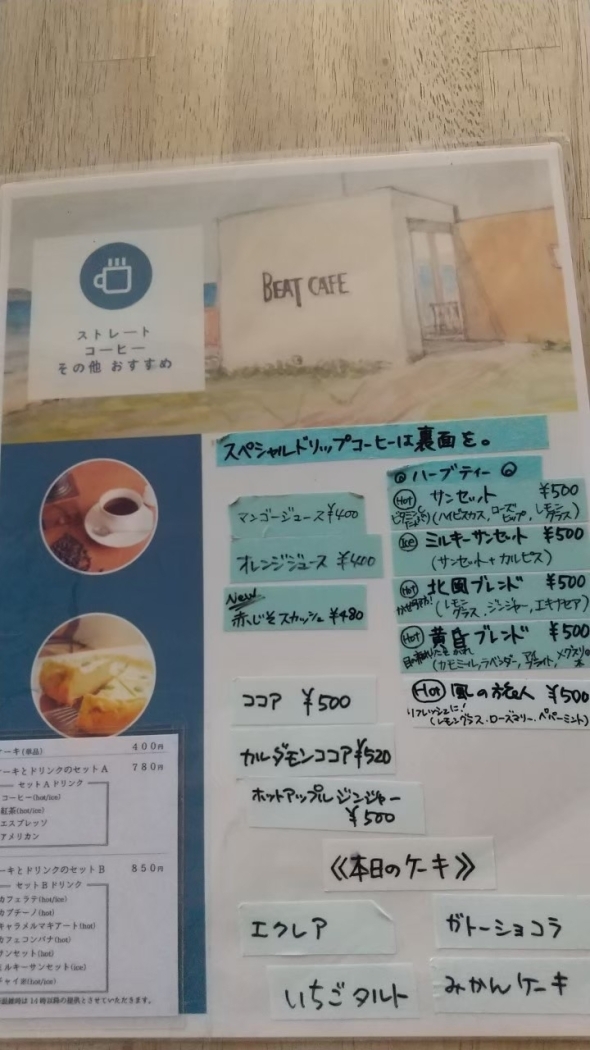 BEAT CAFE
ストレート
コーヒー
その他 おすすめ
スペシャルドリップコーヒーは裏面を。
マンゴージュース ¥400
オレンジジュース ¥400
New
赤じそスカッシュ ¥480
ココア ¥500
カルダモンココア ¥520
ホットアップルジンジャー
¥500
ハーブティー
Hot サンセット ¥500
(ハイビスカス、ローズヒップ、レモングラス)
Ice ミルキーサンセット ¥500
(サンセット+カルピス)
Hot 北風ブレンド ¥500
(レモングラス、ジンジャー、エキナセア)
Hot 黄昏ブレンド ¥500
Hot 風の旅人 ¥500
リフレッシュに!
(レモングラス・ローズマリー・ペパーミント)
《本日のケーキ》
エクレア
ガトーショコラ
いちごタルト
みかんケーキ
ケーキ(単品) 400円
ケーキとドリンクのセットA 780円
セットAドリンク
コーヒー(hot/ice)
紅茶(hot/ice)
エスプレッソ
アメリカン
ケーキとドリンクのセットB 850円
セットBドリンク
カフェラテ(hot/ice)
カプチーノ(hot)
キャラメルマキアート(hot)
カフェコンパナ(hot)
サンセット(hot)
ミルキーサンセット(ice)
チャイ(hot/ice)
は14時以降の提供とさせていただきます。